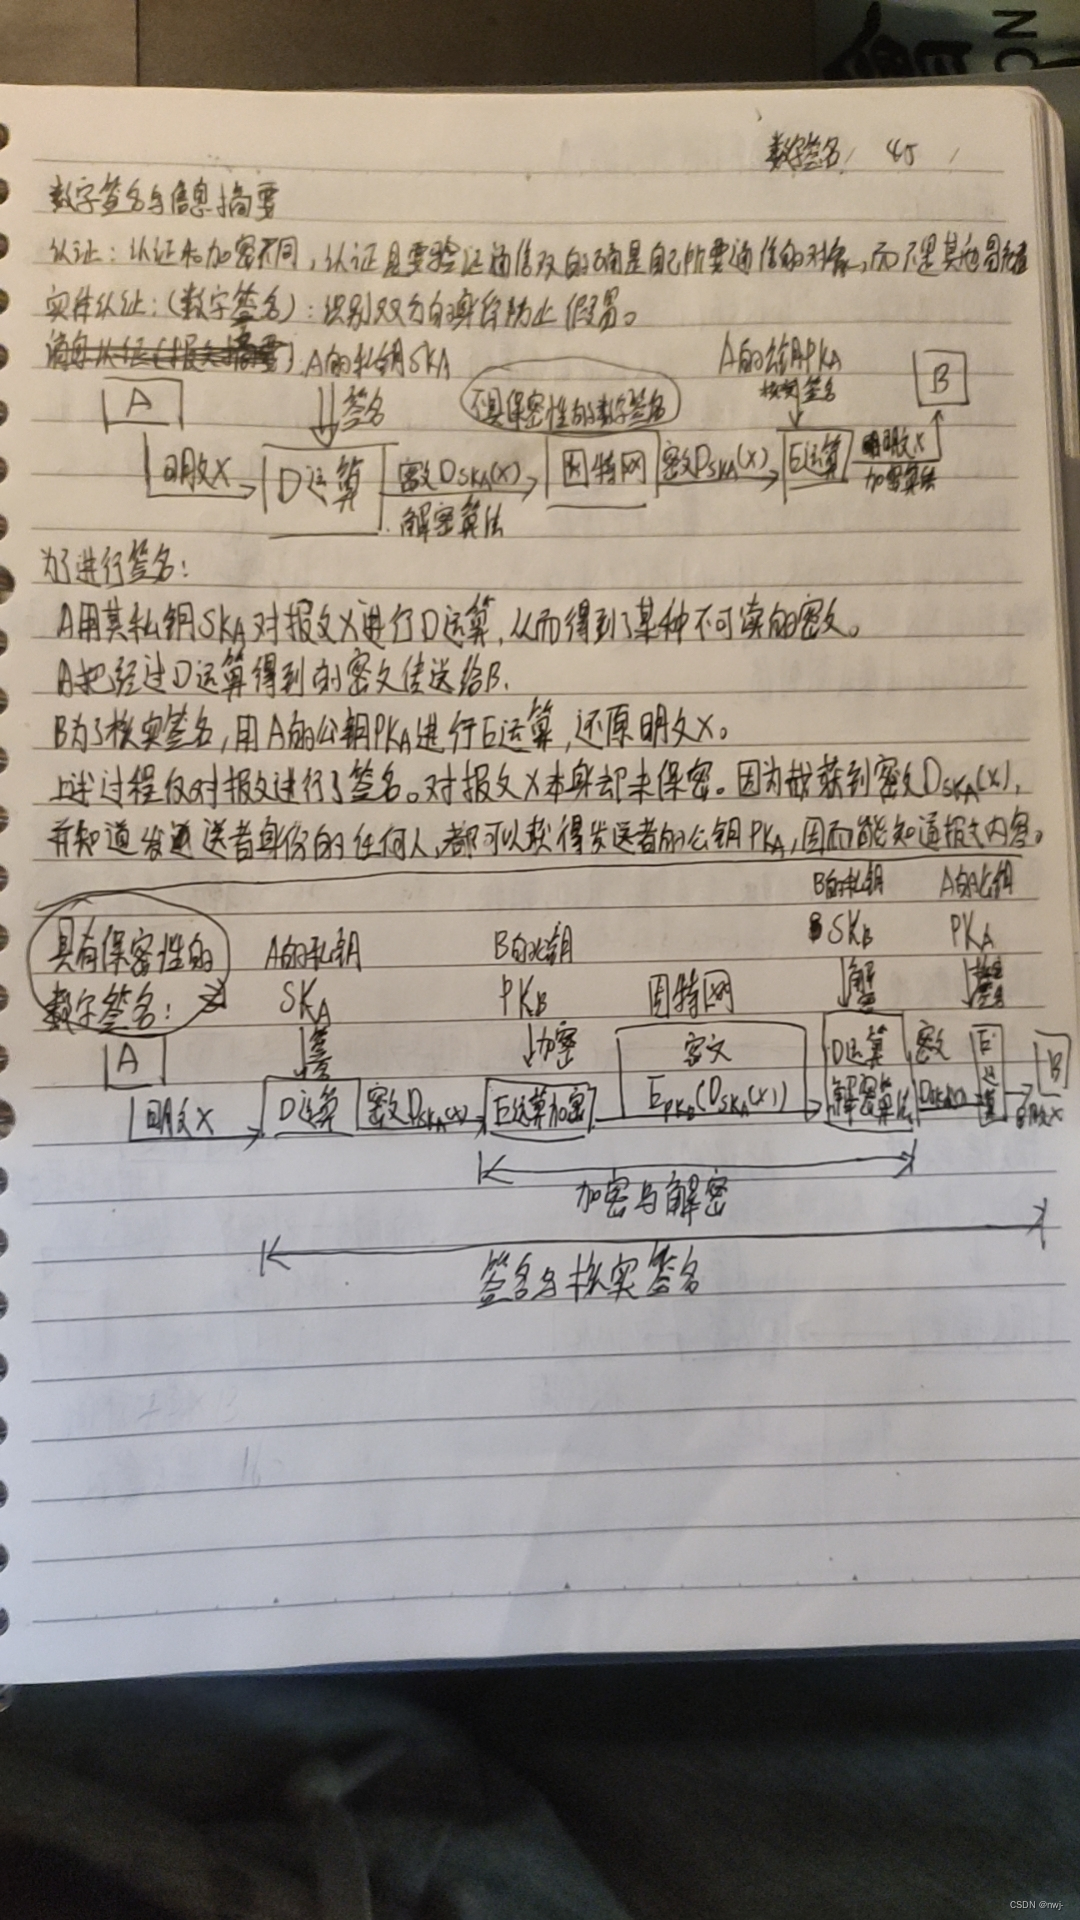 数字签名 45
数字签名与信息摘要
认证:认证和加密不同,认证是要验证通信双方的确是自己所要通信的对象,而不是其他冒充者
实体认证:(数字签名):识别双方的身份防止假冒。
A的私钥SKA A的公钥PKA
A 签名 不具保密性的数字签名 核实签名 B
明文X D运算 密文DSKA(X) 因特网 密文DSKA(X) E运算 明文X
解密算法 加密算法
为了进行签名:
A用其私钥SKA对报文X进行D运算,从而得到了某种不可读的密文。
A把经过D运算得到的密文传送给B.
B为了核实签名,用A的公钥PKA进行E运算,还原明文X。
上述过程仅对报文进行了签名。对报文X本身却未保密。因为截获到密文DSKA(X),
并知道发送者身份的任何人,都可以获得发送者的公钥PKA,因而能知道报文内容。
B的私钥 A的公钥
具有保密性的 A的私钥 B的公钥 SKB PKA
数字签名: SKA PKB 因特网 解密 核实签名
A 签名 加密 密文 D运算 密文 E运算 B
明文X D运算 密文DSKA(X) E运算加密 EPKB(DSKA(X)) 解密算法 DSKA(X) 明文X
加密与解密
签名与核实签名
CSDN @nwj-